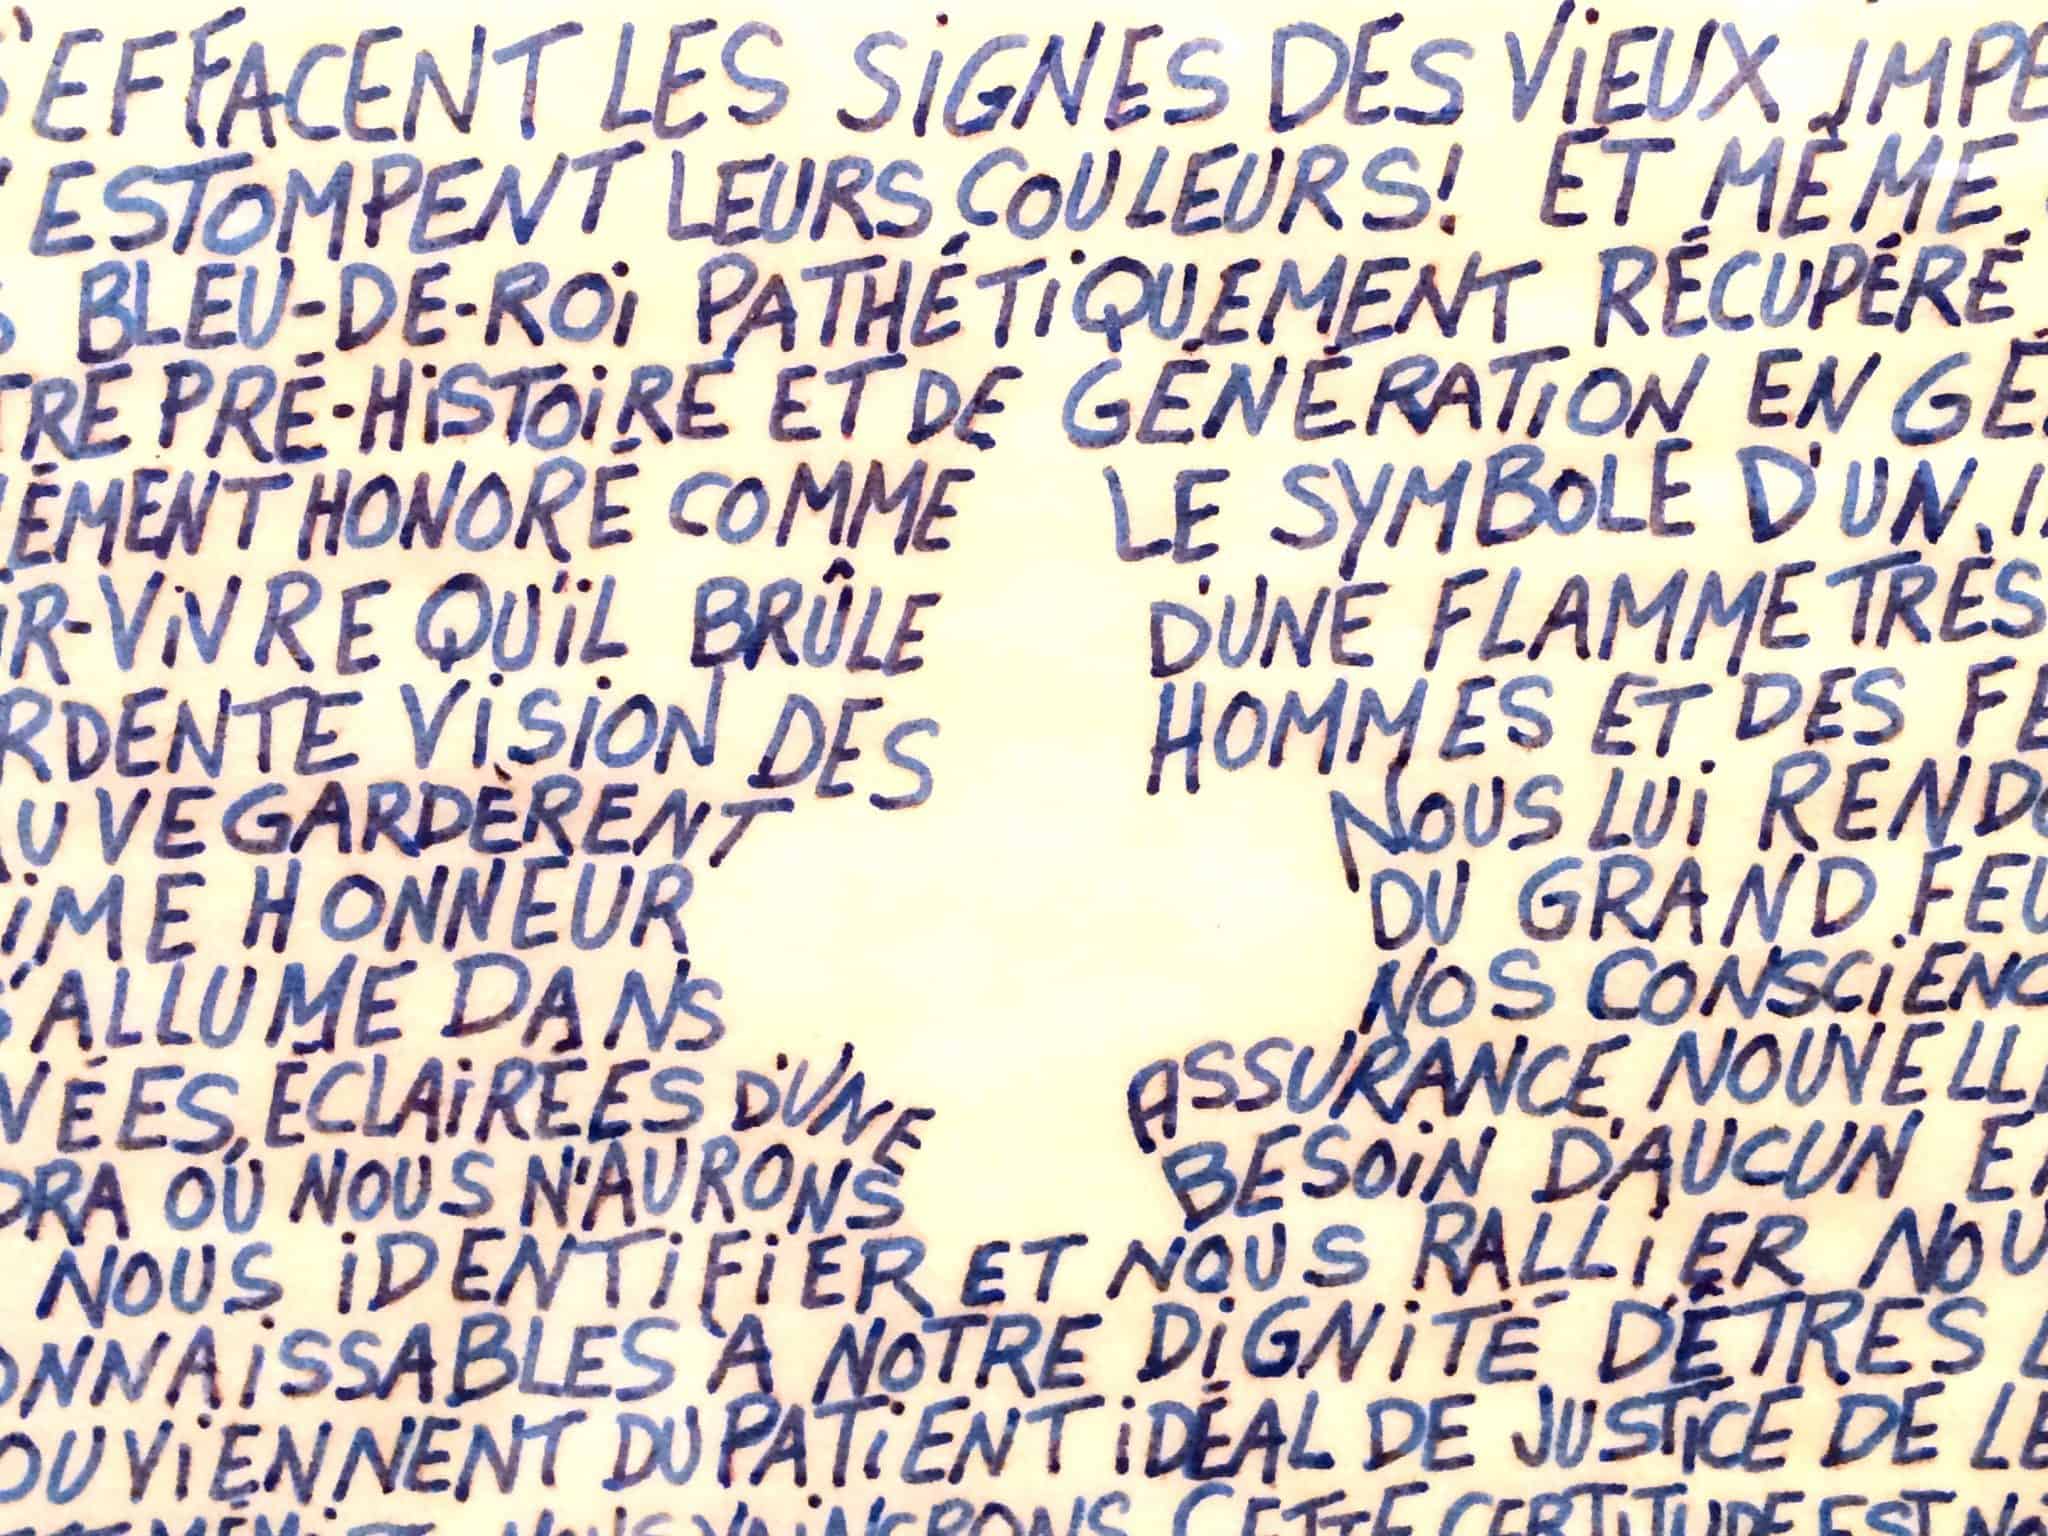 S'EFFACENT LES SIGNES DES VIEUX IMPE
S'ESTOMPENT LEURS COULEURS! ET MÊME
S BLEU-DE-ROI PATHÉTIQUEMENT RÉCUPÉRÉ
TRE PRÉ-HISTOIRE ET DE GÉNÉRATION EN GÉ
ÉMENT HONORÉ COMME LE SYMBOLE D'UN
IR-VIVRE QU'IL BRÛLE D'UNE FLAMME TRÈS
RDENTE VISION DES HOMMES ET DES FE
AUVEGARDÈRENT NOUS LUI REND
IME HONNEUR DU GRAND FEU
S'ALLUME DANS NOS CONSCIENC
VÉES, ÉCLAIRÉES D'UNE ASSURANCE NOUVELLE
DRA OÙ NOUS N'AURONS BESOIN D'AUCUN E
NOUS IDENTIFIER ET NOUS RALLIER NOU
ONNAISSABLES À NOTRE DIGNITÉ D'ÊTRES
OUVIENNENT DU PATIENT IDÉAL DE JUSTICE DE LE
NOUS VAINCRONS CETTE CERTITUDE EST NO